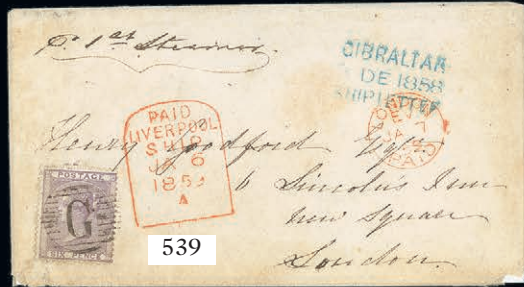 p. 1st Steamer
GIBRALTAR
DE 1858
SHIP LETTER
PAID
LIVERPOOL
SHIP
JA 6
1859
A
LONDON
PAID
Henry Goodford Esqr
6 Lincoln's Inn
New Square
London
POSTAGE
G
SIX PENCE
539